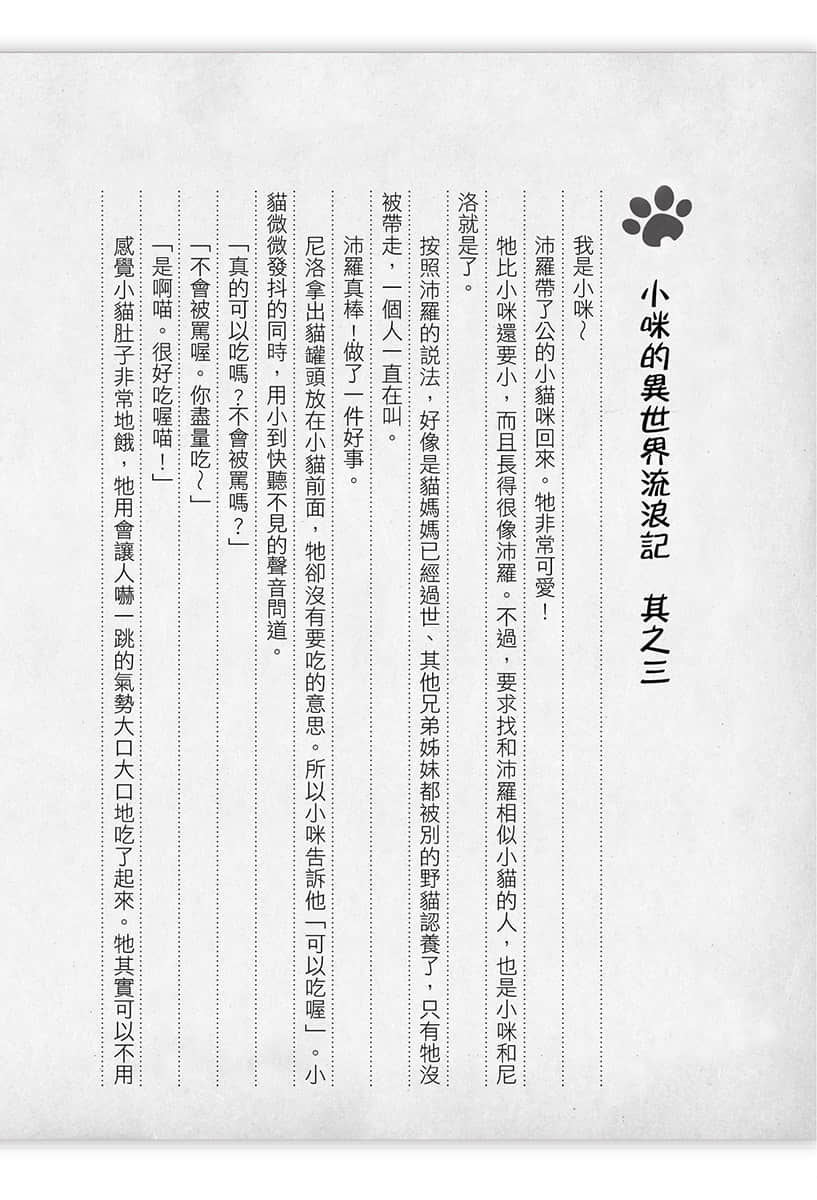 小咪的異世界流浪記　其之三
我是小咪~
沛羅帶了公的小貓咪回來。牠非常可愛！
牠比小咪還要小，而且長得很像沛羅。不過，要求找和沛羅相似小貓的人，也是小咪和尼
洛就是了。
按照沛羅的說法，好像是貓媽媽已經過世、其他兄弟姊妹都被別的野貓認養了，只有牠沒
被帶走，一個人一直在叫。
沛羅真棒！做了一件好事。
尼洛拿出貓罐頭放在小貓前面，牠卻沒有要吃的意思。所以小咪告訴他「可以吃喔」。小
貓微微發抖的同時，用小到快聽不見的聲音問道。
「真的可以吃嗎？不會被罵嗎？」
「不會被罵喔。你盡量吃~」
「是啊喵。很好吃喔喵！」
感覺小貓肚子非常地餓，牠用會讓人嚇一跳的氣勢大口大口地吃了起來。牠其實可以不用